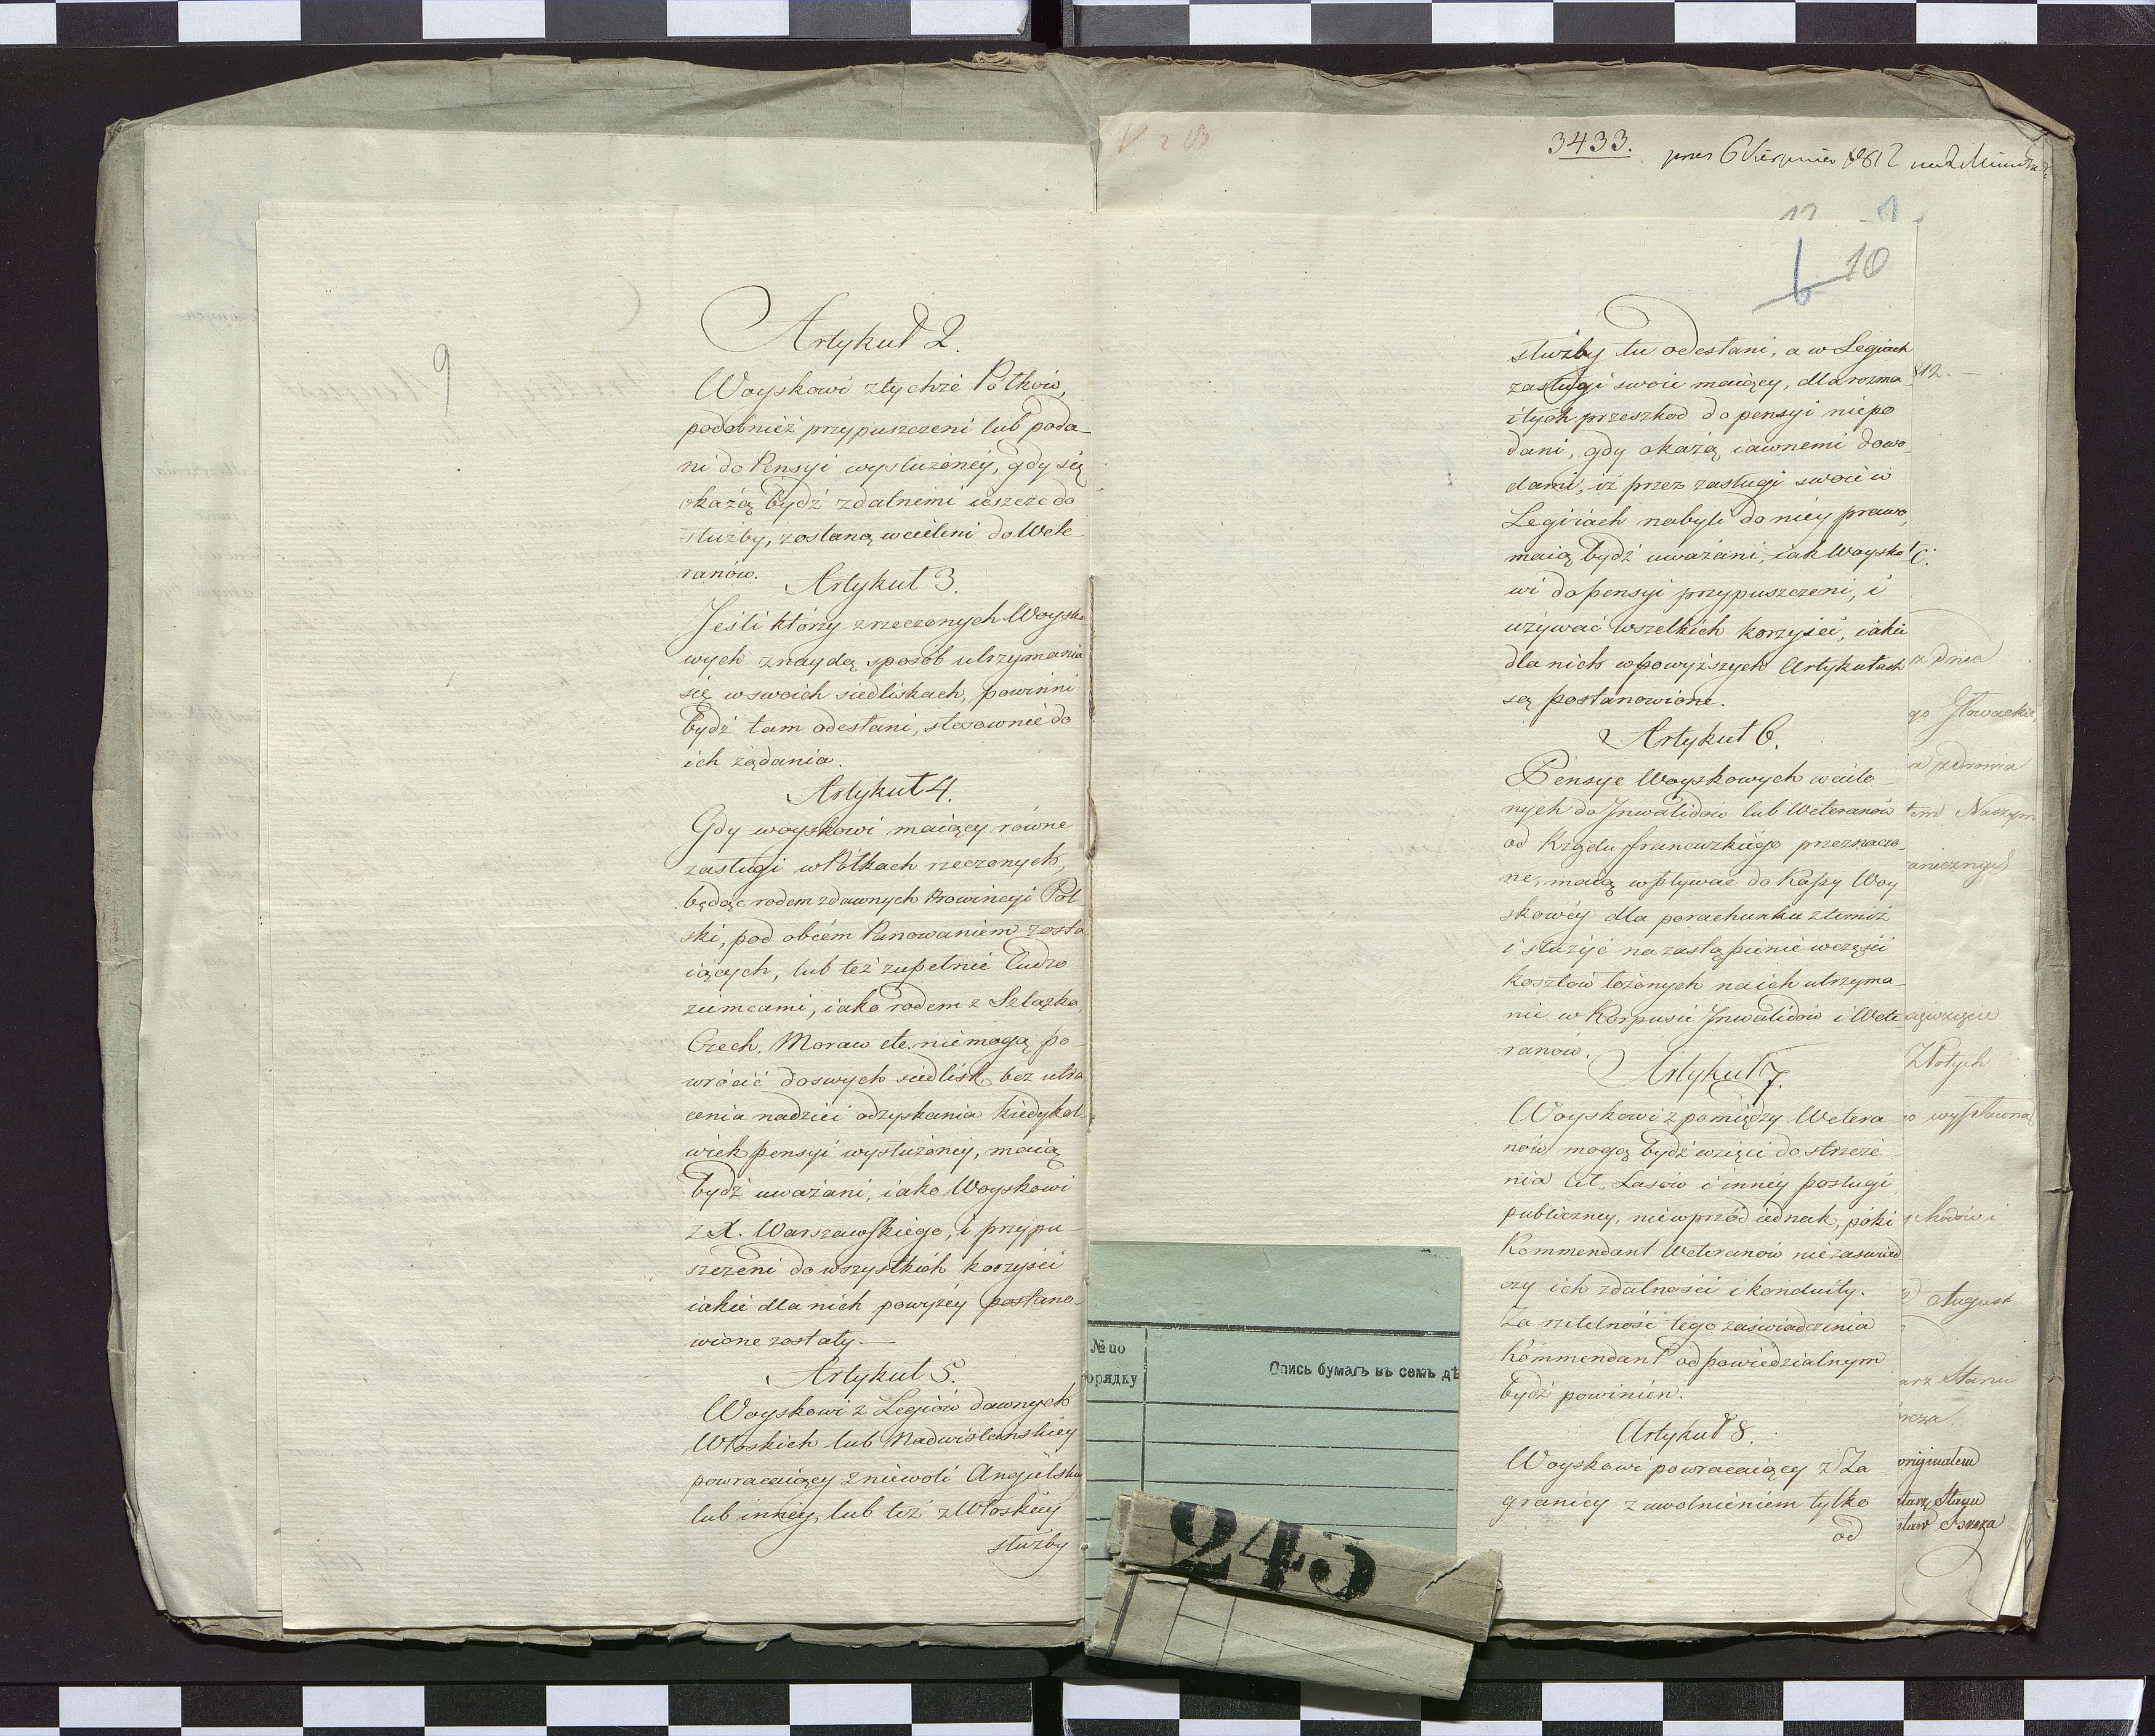 9
Artykuł 2.
Woyskowi z tychże Półków,
podobnież przypuszczeni lub poda-
ni do Pensyi wysłużoney, gdy się
okażą bydź zdatnemi ieszcze do
służby, zostaną wcieleni do Wete-
ranów.
Artykuł 3.
Jeśli którzy z rzeczonych Woysko
wych znaydą sposób utrzymania
się w swoich siedliskach, powinni
bydź tam odesłani, stosownie do
ich żądania.
Artykuł 4.
Gdy woyskowi maiący równe
zasługi w Półkach rzeczonych,
będąc rodem z dawnych Prowincyi Pol
ski, pod obcém Panowaniem zosta
iących, lub też zupełnie Cudzo
ziemcami, iako rodem z Szląska,
Czech, Moraw etc. nie mogą po
wrócić do swych siedlisk bez utra
cenia nadziei odzyskania kiedykol
wiek pensyi wysłużoney, maią
bydź uważani, iako Woyskowi
z X. Warszawskiego, i przypu-
szczeni do wszystkich korzyści
iakie dla nich powyżey postano-
wione zostały.—
Artykuł 5.
Woyskowi z Legiów dawnych
Włoskich lub Nadwiślańskiey
powracaiący z niewoli Angielskiey
lub inney, lub też z Włoskiey
służby
3433.
pres 6 Sierpnia 1812
12
1
6 10
służby tu odesłani, a w Legiach
zasługi swoie maiący, dla rozma
itych przeszkod do pensyi niepo
dani, gdy okażą iawnemi dowo-
dami, iż przez zasługi swoie w
Legiiach nabyli do niey prawo,
maią bydź uważani, iak Woysko
wi do pensyi przypuszczeni, i
używać wszelkich korzyści, iakie
dla nich w powyższych Artykułach
są postanowione.
Artykuł 6.
Pensye Woyskowych wcielo-
nych do Inwalidów lub Weteranów
od Rządu francuzkiego przeznaczo-
ne, maią wpływać do Kassy Woy-
skowéy dla porachunku z temiż
i służyć na zastąpienie w części
kosztów łożonych na ich utrzyma-
nie w Korpusie Inwalidów i Wete
ranow.
Artykuł 7.
Woyskowi z pomiędzy Wetera
nów mogą bydź wzięci do strzeże
nia Ceł, Lasów i inney posługi
publiczney, nie wprzód iednak, póki
Kommendant Weteranów nie zaświad
czy ich zdatności i konduity.
Za rzetelność tego zaświadczenia
Kommendant odpowiedzialnym
bydź powinien.
Artykuł 8.
Woyskowi powracaiący z Za
granicy z uwolnieniem tylko
od
812.
z dnia
zdrowia
Złotych
chodów i
August
arz Stanu
originałem
tarz Stanu
sław Breza
№ по
орядку
Опись бумагъ въ семъ дѣ
245